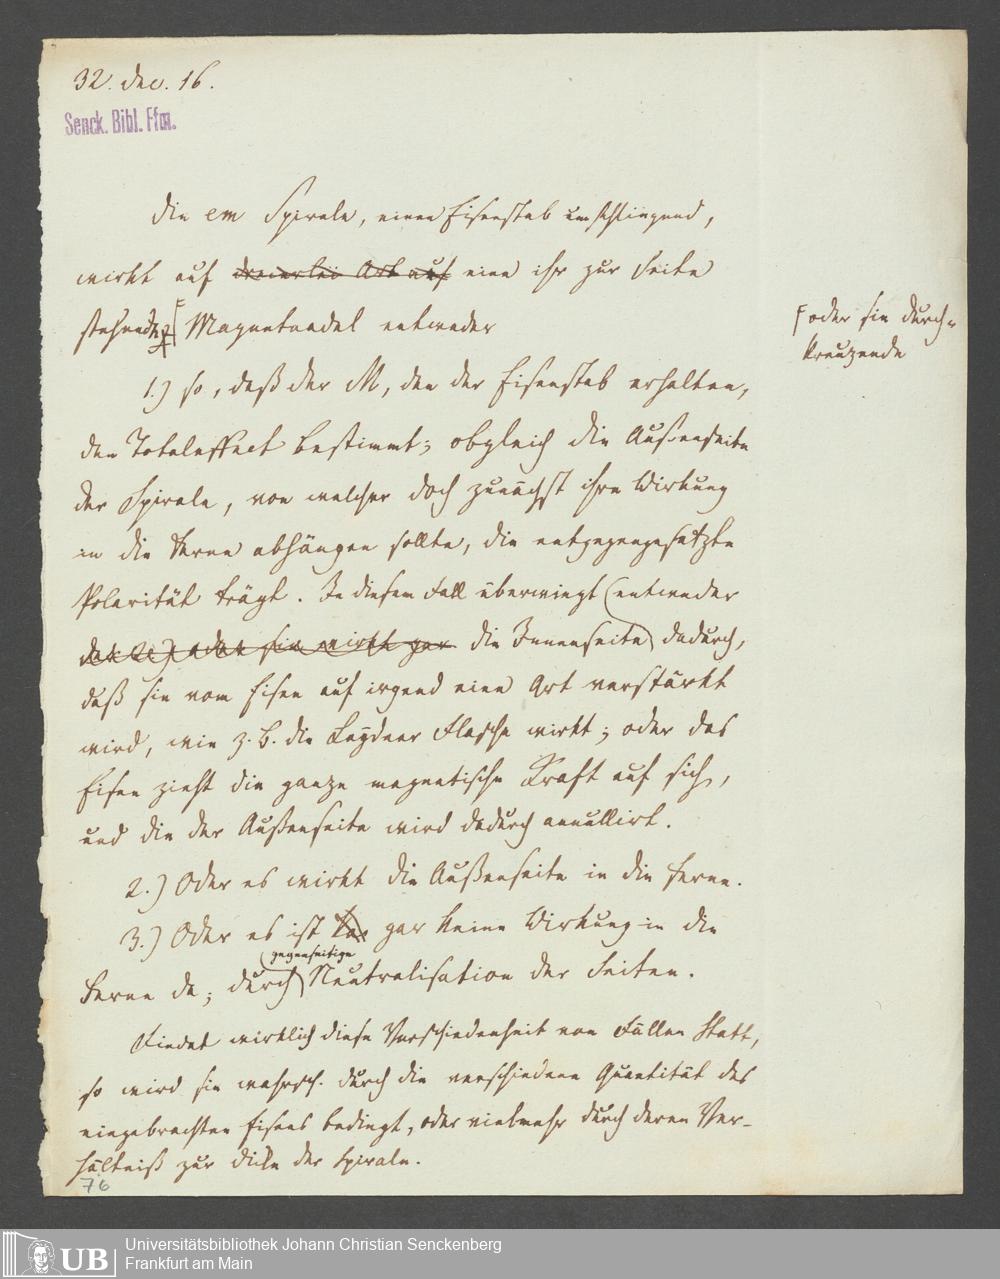 32. dec. 16.
Senck. Bibl. Ffm.
Die em Spirale, einen Eisenstab umschlingend,
wirkt auf dreierlei Art auf eine ihr zur Seite
stehende Magnetnadel entweder
oder sie durch-
kreuzende
1.) so, daß der M, den der Eisenstab erhalten,
den Totaleffect bestimmt; obgleich die Außenseite
der Spirale, von welcher doch zunächst ihre Wirkung
in die Ferne abhängen sollte, die entgegengesetzte
Polarität trägt. In diesem Fall überwiegt (entweder
oder sie wirkt gar die Innenseite) dadurch,
daß sie vom Eisen auf irgend eine Art verstärkt
wird, wie z. B. die Leydner Flasche wirkt; oder das
Eisen zieht die ganze magnetische Kraft auf sich,
und die der Außenseite wird dadurch annullirt.
2.) Oder es wirkt die Außenseite in die Ferne.
3.) Oder es ist gar keine Wirkung in die
gegenseitige
Ferne da; durch Neutralisation der Seiten.
Findet wirklich diese Verschiedenheit von Fällen Statt,
so wird sie wahrsch. durch die verschiedene Quantität des
eingebrachten Eisens bedingt, oder vielmehr durch deren Ver-
hältniß zur Dicke der Spirale.
76
UB
Universitätsbibliothek Johann Christian Senckenberg
Frankfurt am Main